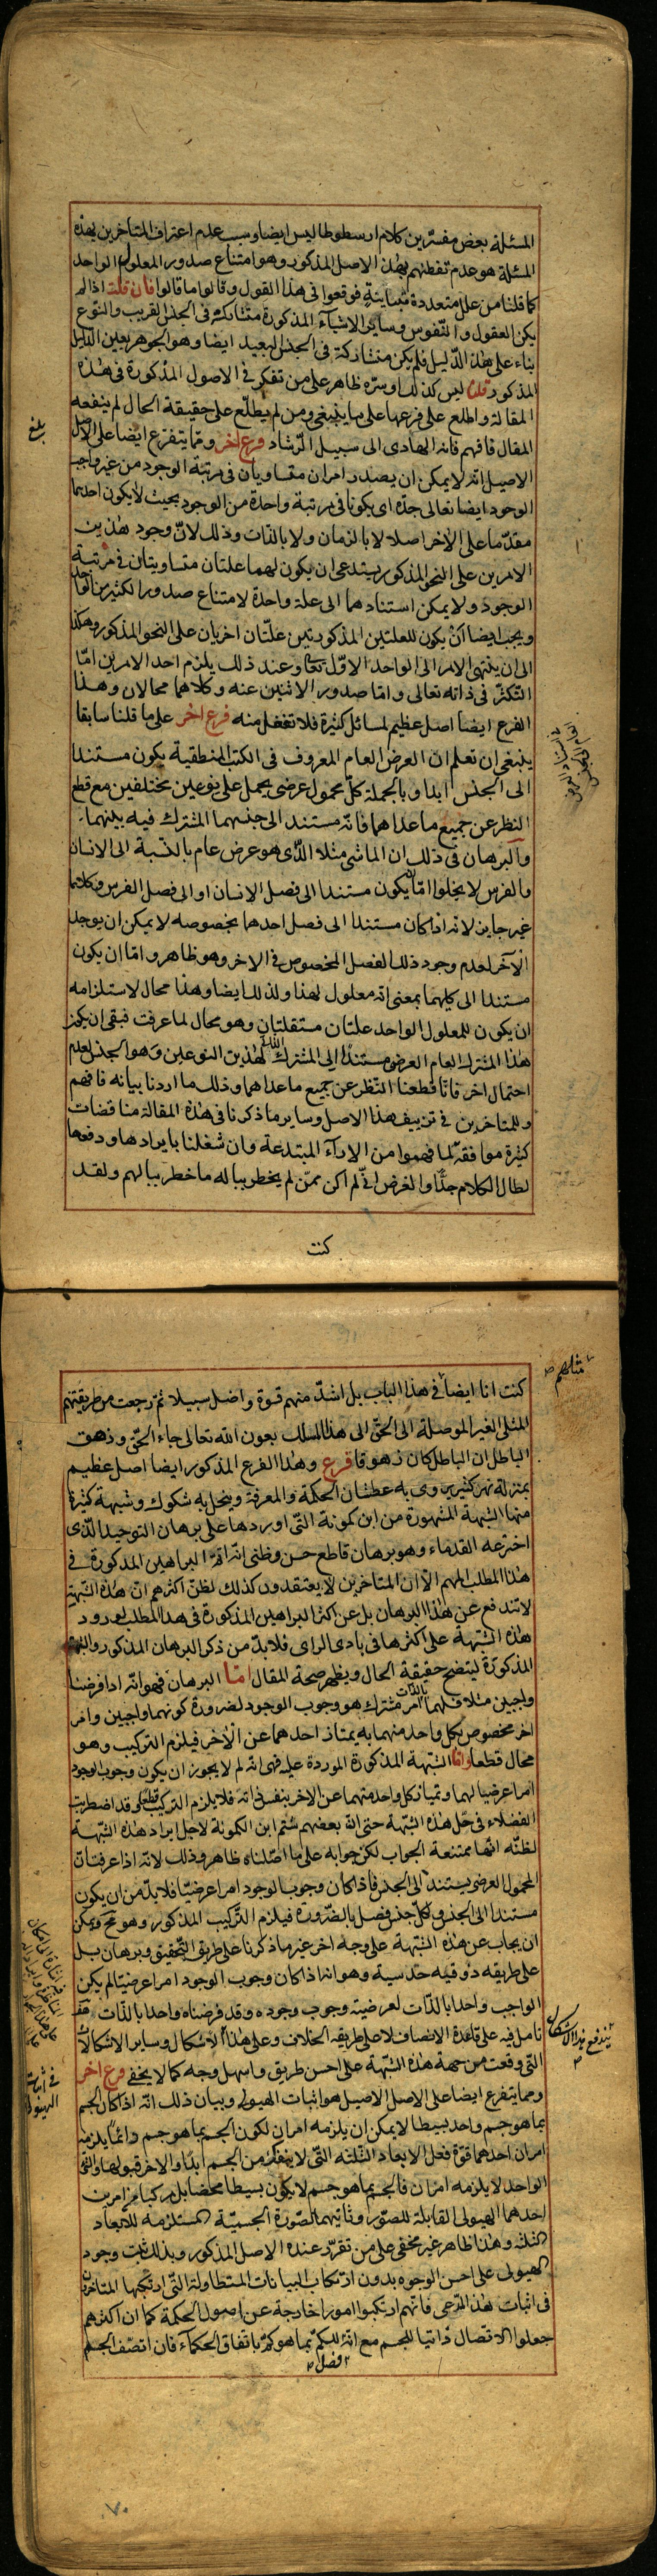 المسئلة بعض مفسّرين كلام ارسطوطاليس ايضا وسبب عدم اعتراف المتاخرين بهذه
المسئلة هو عدم تفطنهم بهذا الاصل المذكور وهو امتناع صدور المعلول الواحد
كما قلنا من علل متعددة متباينة فوقعوا في هذا القول وقالوا ما قالوا فان قلت اذا لم
يكن العقول والنّفوس وساير الاشياء المذكورة متشاركة في الجنس القريب والنوع
بناء على هذا الدّليل فلم يكن متشاركة في الجنس البعيد ايضا وهو الجوهر بعين الدليل
المذكور قلنا ليس كذلك وسرّه ظاهر على من تفكر في الاصول المذكورة في هذه
المقالة واطلع على فرعها على ما ينبغي ومن لم يطلّع على حقيقة الحال لم ينفعه
المقال فافهم فانه الهادى الى سبيل الرّشاد فرع اخر وممّا يتفرع ايضا على الاصل
بلغ
الاصيل انّه لا يمكن ان يصدر امران متساويان في مرتبة الوجود من غير واجب
الوجود ايضا تعالى جدّه اى يكونا في مرتبة واحدة من الوجود بحيث لا يكون احدهما
مقدّما على الاخر اصلا لا بالزمان ولا بالذات وذلك لانّ وجود هذين
الامرين على النحو المذكور يستدعى ان يكون لهما علتان متساويتان في مرتبة
الوجود ولا يمكن استنادهما الى علة واحدة لامتناع صدور الكثير من الواحد
ويجب ايضا ان يكون للعلتين المذكورتين علّتان اخريان على النحو المذكور وهكذا
الى ان ينتهى الامر الى الواحد الاوّل تعالى وعند ذلك يلزم احد الامرين امّا
التكثّر في ذاته تعالى وامّا صدور الاثنين عنه وكلاهما محالان وهذا
الفرع ايضا اصل عظيم لمسائل كثيرة فلا تغفل منه فرع اخر على ما قلنا سابقا
ينبغي ان تعلم ان العرض العام المعروف في الكتب المنطقية يكون مستندا
الى الجنس ابدا وبالجملة كلّ محمول عرضى يحمل على نوعين مختلفين مع قطع
النظر عن جميع ما عداهما فانّه مستند الى جنسهما المشترك فيه بينهما
والبرهان في ذلك ان الماشى مثلا الّذى هو عرض عام بالنسبة الى الانسان
والفرس لا يخلوا امّا ان يكون مستندا الى فصل الانسان او الى فصل الفرس وكلاهما
غير جايز لانه اذا كان مستندا الى فصل احدهما بخصوصه لا يمكن ان يوجد
الاخر لعدم وجود ذلك الفصل المخصوص في الاخر وهو ظاهر وامّا ان يكون
مستندا الى كليهما بمعنى انّه معلول لهذا ولذلك ايضا وهذا محال لاستلزامه
ان يكون للمعلول الواحد علتان مستقلتان وهو محال لما عرفت فبقى ان يكون
هذا المشترك العام العرضى مستندا الى المشترك الذاتى لهذين النوعين وهو الجنس لعدم
احتمال اخر فانّا قطعنا النّظر عن جميع ما عداهما وذلك ما اردنا بيانه فافهم
وللمتاخرين في تزييف هذا الاصل وساير ما ذكرنا في هذه المقالة مناقضات
كثيرة موافقة لما فهموا من الاراء المبتدعة وان شغلنا بايرادها ودفعها
لطال الكلام جدّا والغرض انّى لم اكن ممّن لم يخطر بباله ما خطر ببالهم ولقد
كنت
كنت انا ايضا في هذا الباب بل اشدّ منهم قوة واضل سبيلا ثمّ رجعت من طريقتهم
المثلى الغير الموصلة الى الحقّ الى هذا المسلك بعون الله تعالى جاء الحقّ وزهق
الباطل ان الباطل كان زهوقا فرع وهذا الفرع المذكور ايضا اصل عظيم
بمنزلة نهر كثير يروى به عطشان الحكمة والمعرفة وينحل به شكوك وشبهة كثيرة
منها الشبهة المشهورة من ابن كمونة التّى اوردها على برهان التوحيد الذى
اخترعه القدماء وهو برهان قاطع حسن وظنى انّه اتمّ البراهين المذكورة في
هذا المطلب المهم الّا ان المتاخرين لا يعتقدون كذلك لظنّ اكثرهم انّ هذه الشبهة
لا تندفع عن هذا البرهان بل عن اكثر البراهين المذكورة في هذا المطلب لورود
هذه الشبهة على اكثرها في بادى الراى فلا بدّ من ذكر البرهان المذكور والشبهة
المذكورة ليتضح حقيقة الحال ويظهر صحة المقال امّا البرهان فهو انّه اذا فرضنا
واجبين مثلا فلهما امر مشترك بالذات هو وجوب الوجود لضرورة كونهما واجبين وامر
اخر مخصوص بكل واحد منهما به يمتاز احدهما عن الاخر فيلزم التركيب وهو
محال قطعا وامّا الشبهة المذكورة الموردة عليه فهى انه لم لا يجوز ان يكون وجوب الوجود
امرا عرضيا لهما وتمياز كل واحد منهما عن الاخر بنفس ذاته فلا يلزم التركيب قطعا وقد اضطربت
الفضلاء في حلّ هذه الشبهة حتى انّ بعضهم شتم ابن الكمونة لاجل ايراد هذه الشبهة
لظنّه انّها ممتنعة الجواب لكن جوابه على ما اصّلناه ظاهر وذلك لانّه اذا عرفت انّ
المحمول العرضى يستند الى الجنس فاذا كان وجوب الوجود امرا عرضيّا فلا بدّ من ان يكون
مستندا الى الجنس ولكلّ جنس فصل بالضّرورة فيلزم التّركيب المذكور وهو مح ويمكن
ان يجاب عن هذه الشبهة على وجه اخر غير ما ذكرنا على طريق التّحقيق وبرهان بل
على طريقه ذوقيه حدسية وهو انه اذا كان وجوب الوجود امرا عرضيّا لم يكن
الواجب واحدا بالذات لعرضيّة وجوب وجوده وقد فرضناه واحدا بالذات هف
تامل فيه على قاعدة الانصاف لا على طريقه الخلاف وعلى هذا الاشكال وساير الاشكالات
يندفع هذا الاشكال
التّى وقعت من جهة هذه الشبهة على احسن طريق واسهل وجه كما لا يخفى فرع اخر
في اثبات الهيولى
ومما يتفرع ايضا على الاصل الاصيل هو اثبات الهيولى وبيان ذلك انّه اذا كان الجسم
بما هو جسم واحد بسيطا لا يمكن ان يلزمه امران لكون الجسم بما هو جسم دائما يلزمه
امران احدهما قوّة فعل الابعاد الثلثة التّى لا ينفكّ من الجسم ابدا والاخر قبولها والشئ
الواحد لا يلزمه امران فالجسم بما هو جسم لا يكون بسيطا محضا بل مركبا من امرين
احدهما الهيولى القابلة للصّور وثانيهما الصّورة الجسميّة المستلزمة للابعاد
الثلثة وهذا ظاهر غير مخفى على من تقرّر عنده الاصل المذكور وبذلك ثبت وجود
الهيولى على احسن الوجوه بدون ارتكاب البيانات المتطاولة التّى ارتكبها المتاخرون
في اثبات هذا المدّعى فانّهم ارتكبوا امورا خارجة عن اصول الحكمة كما ان اكثرهم
جعلوا الاتصال ذاتيا للجسم مع انّه للكمّ بما هو كمّ باتفاق الحكماء فان اتصف الجسم